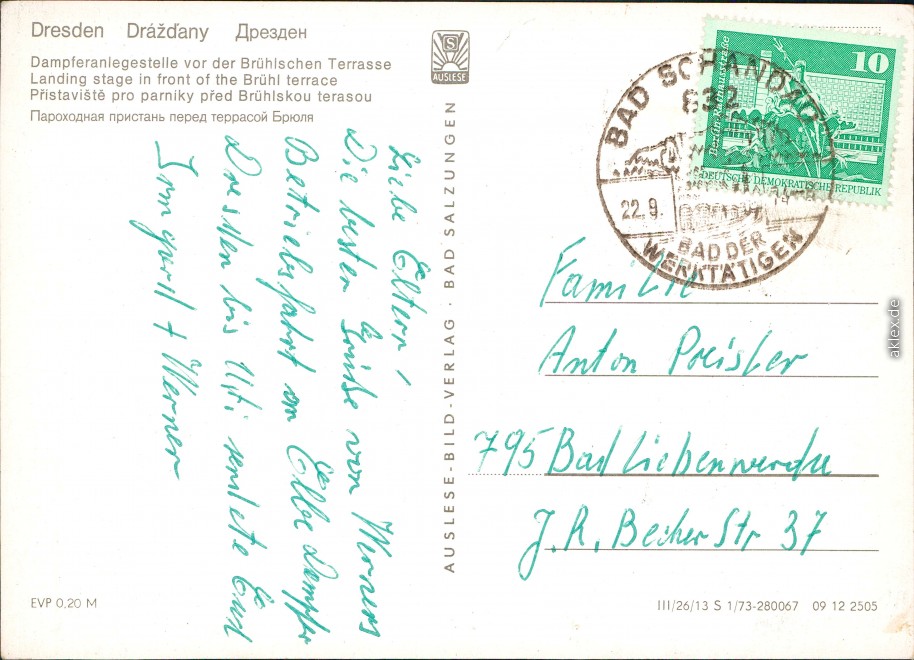 Dresden Drážďany Дрезден
Dampferanlegestelle vor der Brühlschen Terrasse
Landing stage in front of the Brühl terrace
Přistaviště pro parniky před Brühlskou terasou
Пароходная пристань перед террасой Брюля
S
AUSLESE
Liebe Eltern!
Die besten Grüße von Werners
Betriebsfahrt am Elbe Dampfer
Dresden bis sendete Euch
Irmgard + Werner
AUSLESE-BILD-VERLAG · BAD SALZUNGEN
10
DEUTSCHE DEMOKRATISCHE REPUBLIK
BAD SCHANDAU
832
22.9.
BAD DER
WERKTÄTIGEN
Familie
Anton Preisler
795 Bad Liebenwerda
J. R. Becher Str 37
EVP 0,20 M
III/26/13 S 1/73-280067 09 12 2505
aklex.de